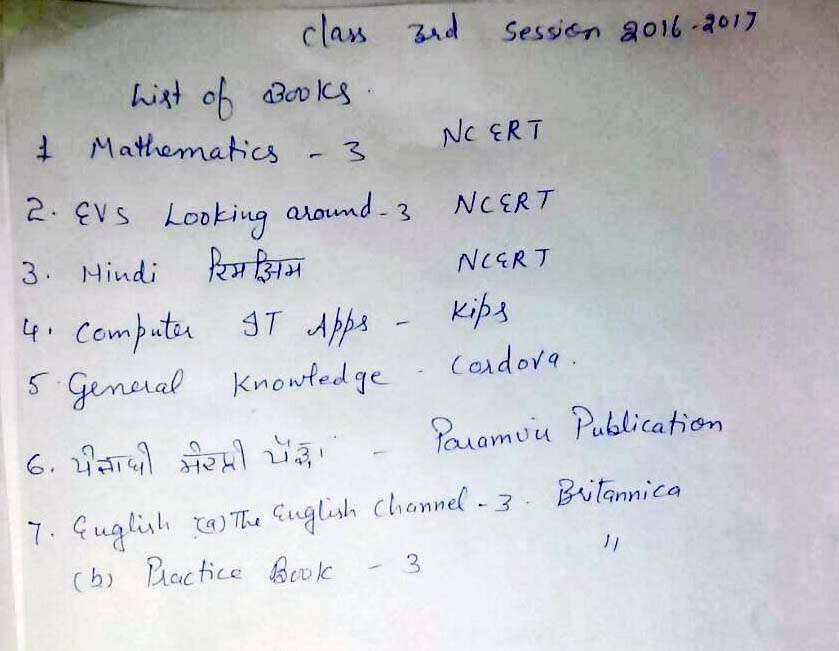 Class 3rd Session 2016-2017
List of Books.
1 Mathematics - 3 NCERT
2. EVS Looking around - 3 NCERT
3. Hindi रिमझिम NCERT
4. Computer IT Apps - Kips
5 General Knowledge - Cordova.
6. ਪੰਜਾਬੀ - Paramvir Publication
7. English (a) The English Channel - 3. Britannica
(b) Practice Book - 3 "